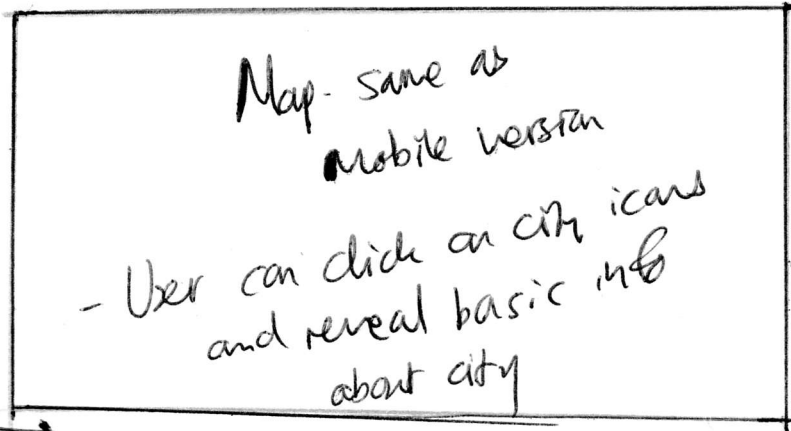 Map - same as
mobile version
- User can click on city icons
and reveal basic info
about city